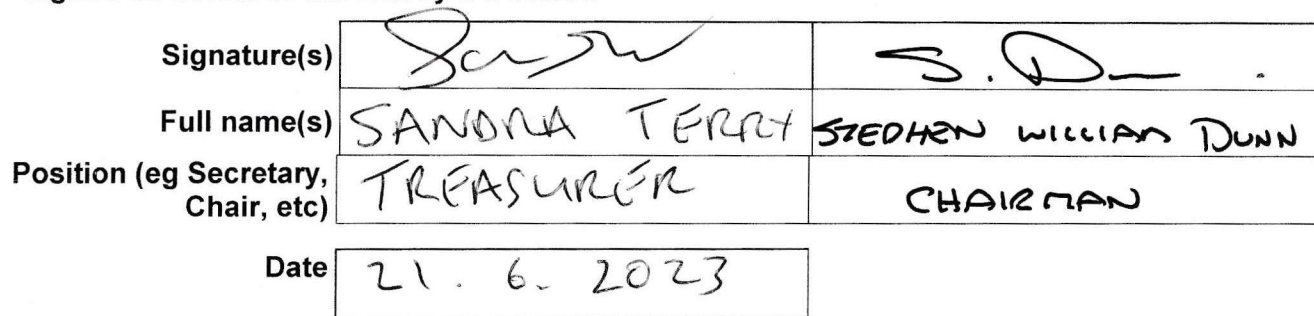 Signature(s) S. D
Full name(s) SANDRA TERRY STEPHEN WILLIAM DUNN
Position (eg Secretary, TREASURER CHAIRMAN
Chair, etc)
Date 21. 6. 2023